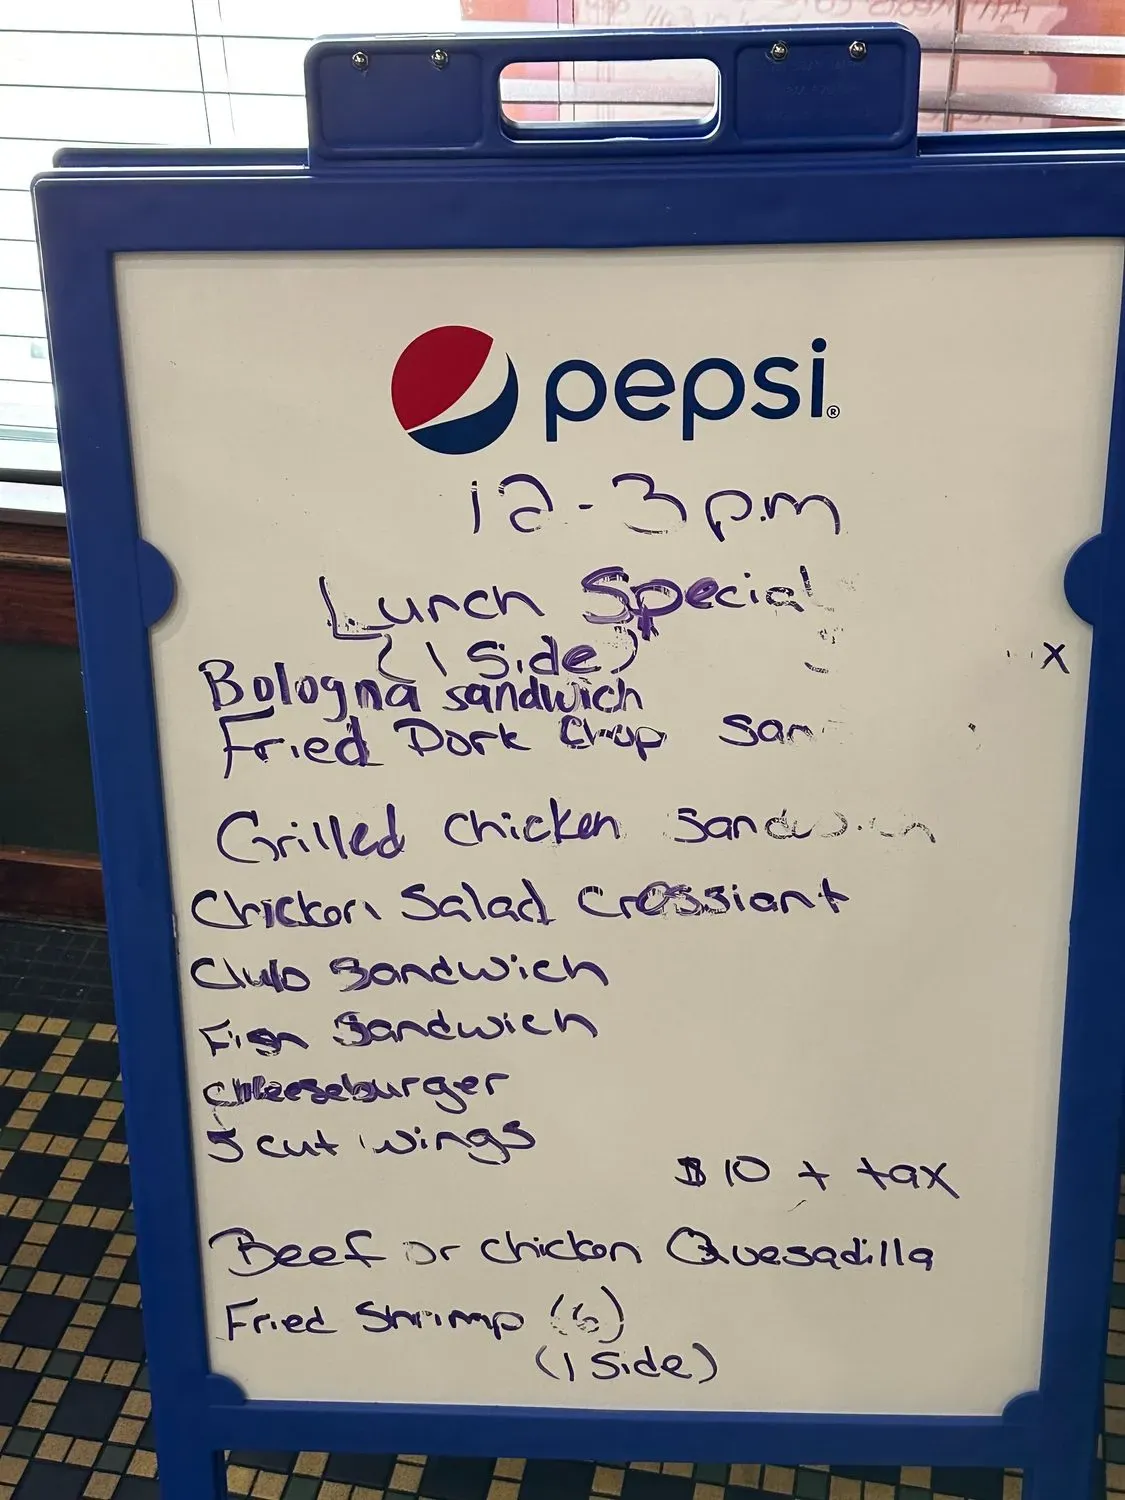 pepsi®
12-3 p.m
Lunch Special
(1 Side)
Bologna sandwich
Fried Pork Chop San
Grilled Chicken Sandwich
Chicken Salad Crossiant
Club Sandwich
Fish Sandwich
Cheeseburger
5 cut wings
$10 + tax
Beef or Chicken Quesadilla
Fried Shrimp (6)
(1 Side)
X